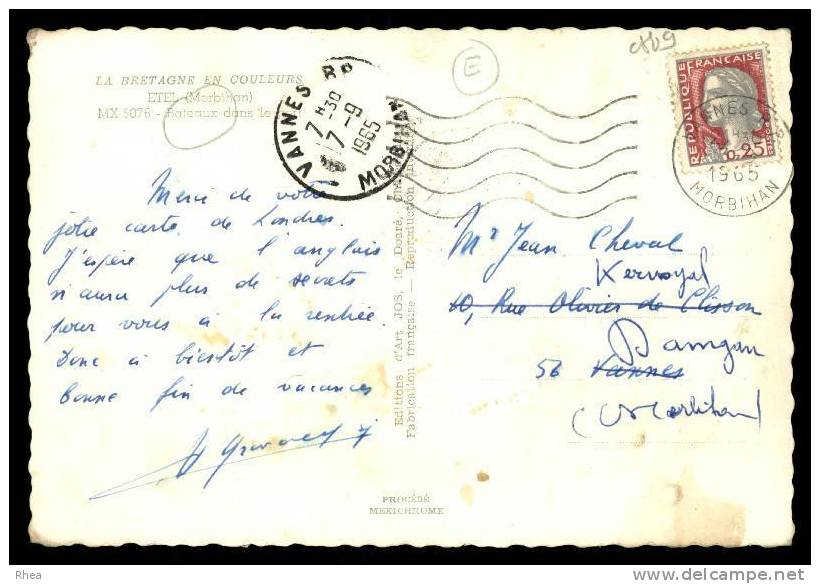 LA BRETAGNE EN COULEURS
ETEL (Morbihan)
MX 5076 - Bateaux dans le
VANNES RP
7 H 30
7-9
1965
MORBIHAN
E
RÉPUBLIQUE FRANÇAISE
0,25
1965
MORBIHAN
Merci de votre
jolie carte de Londres.
J'espère que l'anglais
n'aura plus de secrets
pour vous à la rentrée.
Donc à bientôt et
bonne fin de vacances
Editions d'Art JOS, le Doaré,
Fabrication française — Reproduction
Mr Jean Cheval
Kervoyal
10, Rue Olivier de Clisson
Damgan
56 Vannes
(Morbihan)
PROCÉDÉ
MEXICHROME
© Rhea
delcampe.net